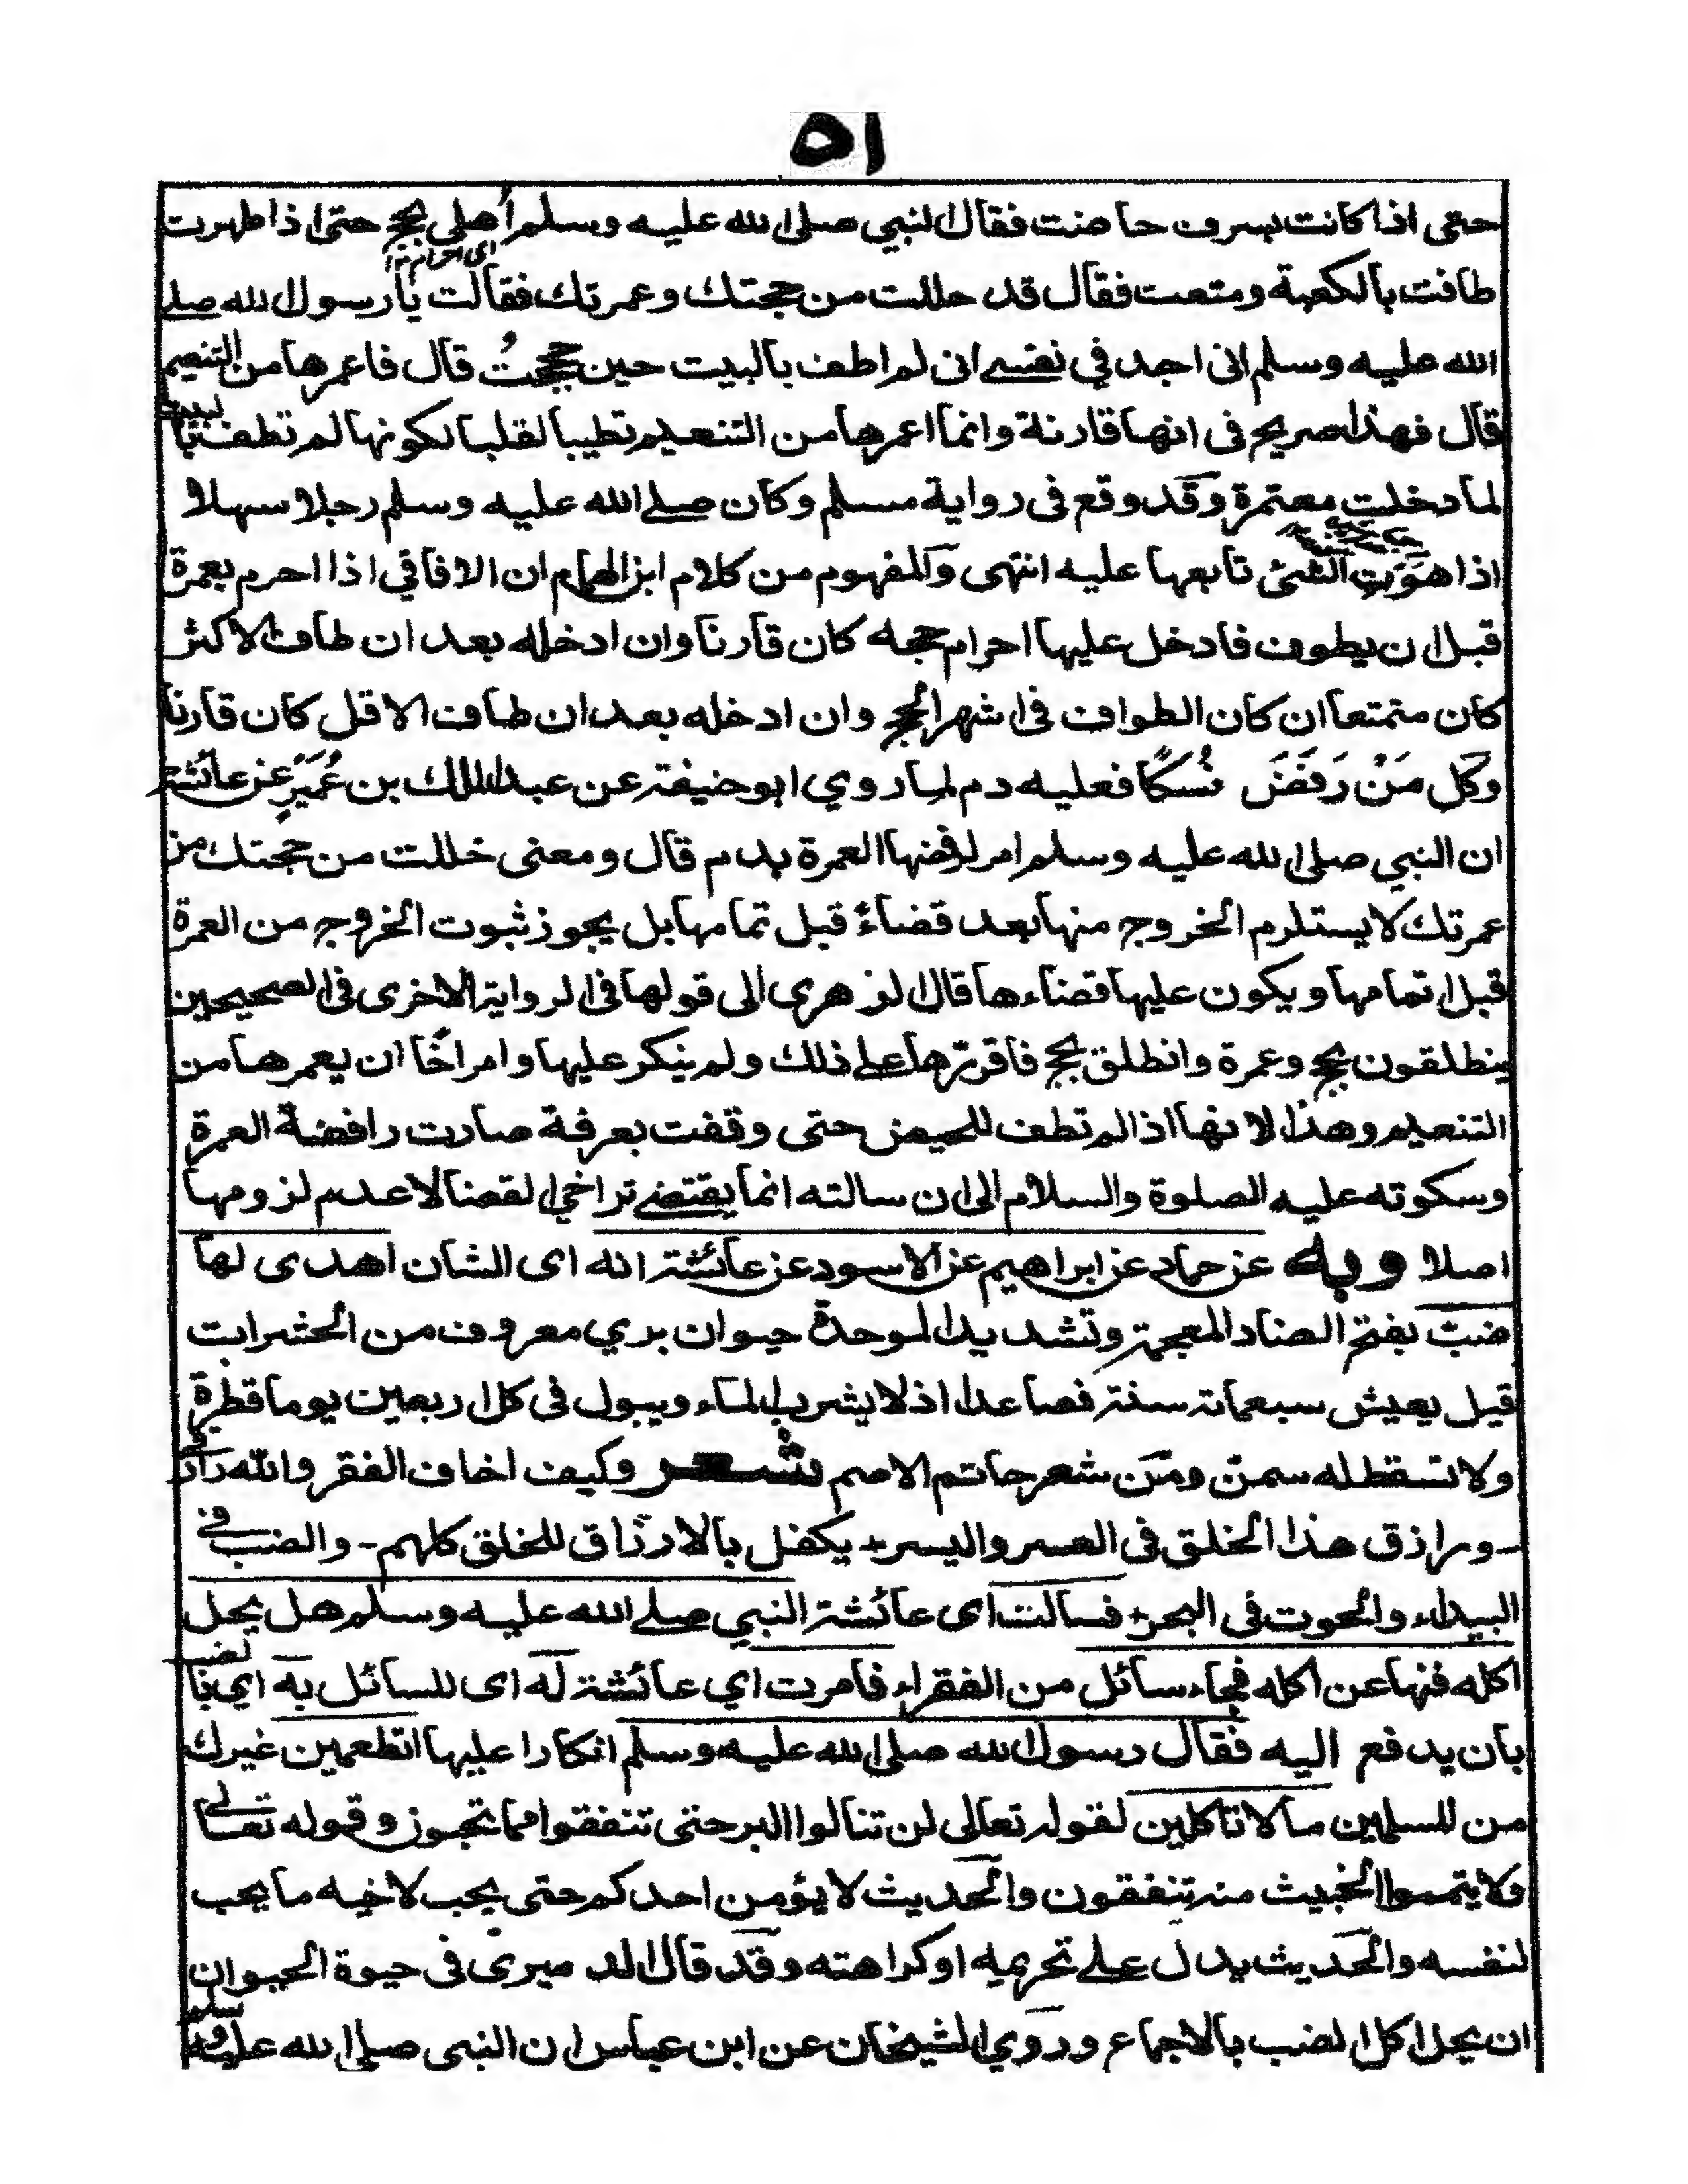 ٥١
حتى اذا كانت بسرف حاضت فقال النبي صلى الله عليه وسلم أهلى بحج حتى اذا طهرت
اى احرام به
طافت بالكعبة ومتعت فقال قد حللت من حجتك وعمرتك فقالت يا رسول الله صلى
الله عليه وسلم انى اجد في نفسى انى لم اطف بالبيت حين حججتُ قال فاعمرها من التنعيم
قال فهذا صريح فى انها قارنة وانما اعمرها من التنعيم تطيبا لقلبا لكونها لم تطف بالبيت
لما دخلت معتمرة وقد وقع فى رواية مسلم وكان صلى الله عليه وسلم رجلا سهلا
اذا هوَيَت الشئ تابعها عليه انتهى والمفهوم من كلام ابن الهمام ان الافاقي اذا احرم بعمرة
قبل ان يطوف فادخل عليها احرام حجه كان قارنا وان ادخله بعد ان طاف الاكثر
كان متمتعا ان كان الطواف فى اشهر الحج وان ادخله بعد ان طاف الاقل كان قارنا
وكل مَنْ رَفَضَ نُسكًا فعليه دم لما روي ابو حنيفة عن عبد الملك بن عُمَيْرٍ عن عائشة
ان النبي صلى الله عليه وسلم امر لرفضها العمرة بدم قال ومعنى خللت من حجتك من
عمرتك لا يستلرم الخروج منها بعد قضاءً قبل تمامها بل يجوز ثبوت الخروج من العمرة
قبل اتمامها ويكون عليها قضاءها قال الزهرى الى قولها فى الرواية الاخرى فى الصحيحين
ينطلقون بحج وعمرة وانطلق بحج فاقرّها على ذلك ولم ينكر عليها وامر اخًا ان يعمرها من
التنعيم وهذا لانها اذا لم تطف للحيض حتى وقفت بعرفة صارت رافضة العمرة
وسكوته عليه الصلوة والسلام الى ان سالته انما يقتضى تراخى القضا لا عدم لزومها
اصلا وبه عن حماد عن ابراهيم عن الاسود عن عائشة انه اى الشان اهدى لها
ضبّ بفتح الضاد المعجمة وتشديد الموحدة حيوان بري معروف من الحشرات
قيل يعيش سبعمائة سنة فصاعدا اذ لا يشرب الماء ويبول فى كل اربعين يوما قطرة
ولا تسقط له سمن ومن شعر حاتم الاصم شعر وكيف اخاف الفقر والله رازقى
ورازق هذا الخلق فى العسر واليسر يكفل بالارزاق للخلق كلهم - والضب فى
البيداء والحوت فى البحر فسالت اى عائشة النبي صلى الله عليه وسلم هل يحل
اكله فنها عن اكله فجاء سائل من الفقراء فامرت اي عائشة له اى للسائل به اي بالضب
بان يدفع اليه فقال رسول الله صلى الله عليه وسلم انكارا عليها اتطعمين غيرك
من المسلمين ما لا تاكلين لقوله تعالى لن تنالوا البر حتى تنفقوا مما تحبون وقوله تعالى
ولا يتمموا الخبيث منه تنفقون والحديث لا يؤمن احدكم حتى يحب لاخيه ما يحب
لنفسه والحديث يدل على تحريمه او كراهته وقد قال الدميرى فى حيوة الحيوان
ان يحل اكل الضب بالاجماع وروي الشيخان عن ابن عباس ان النبى صلى الله عليه وسلم